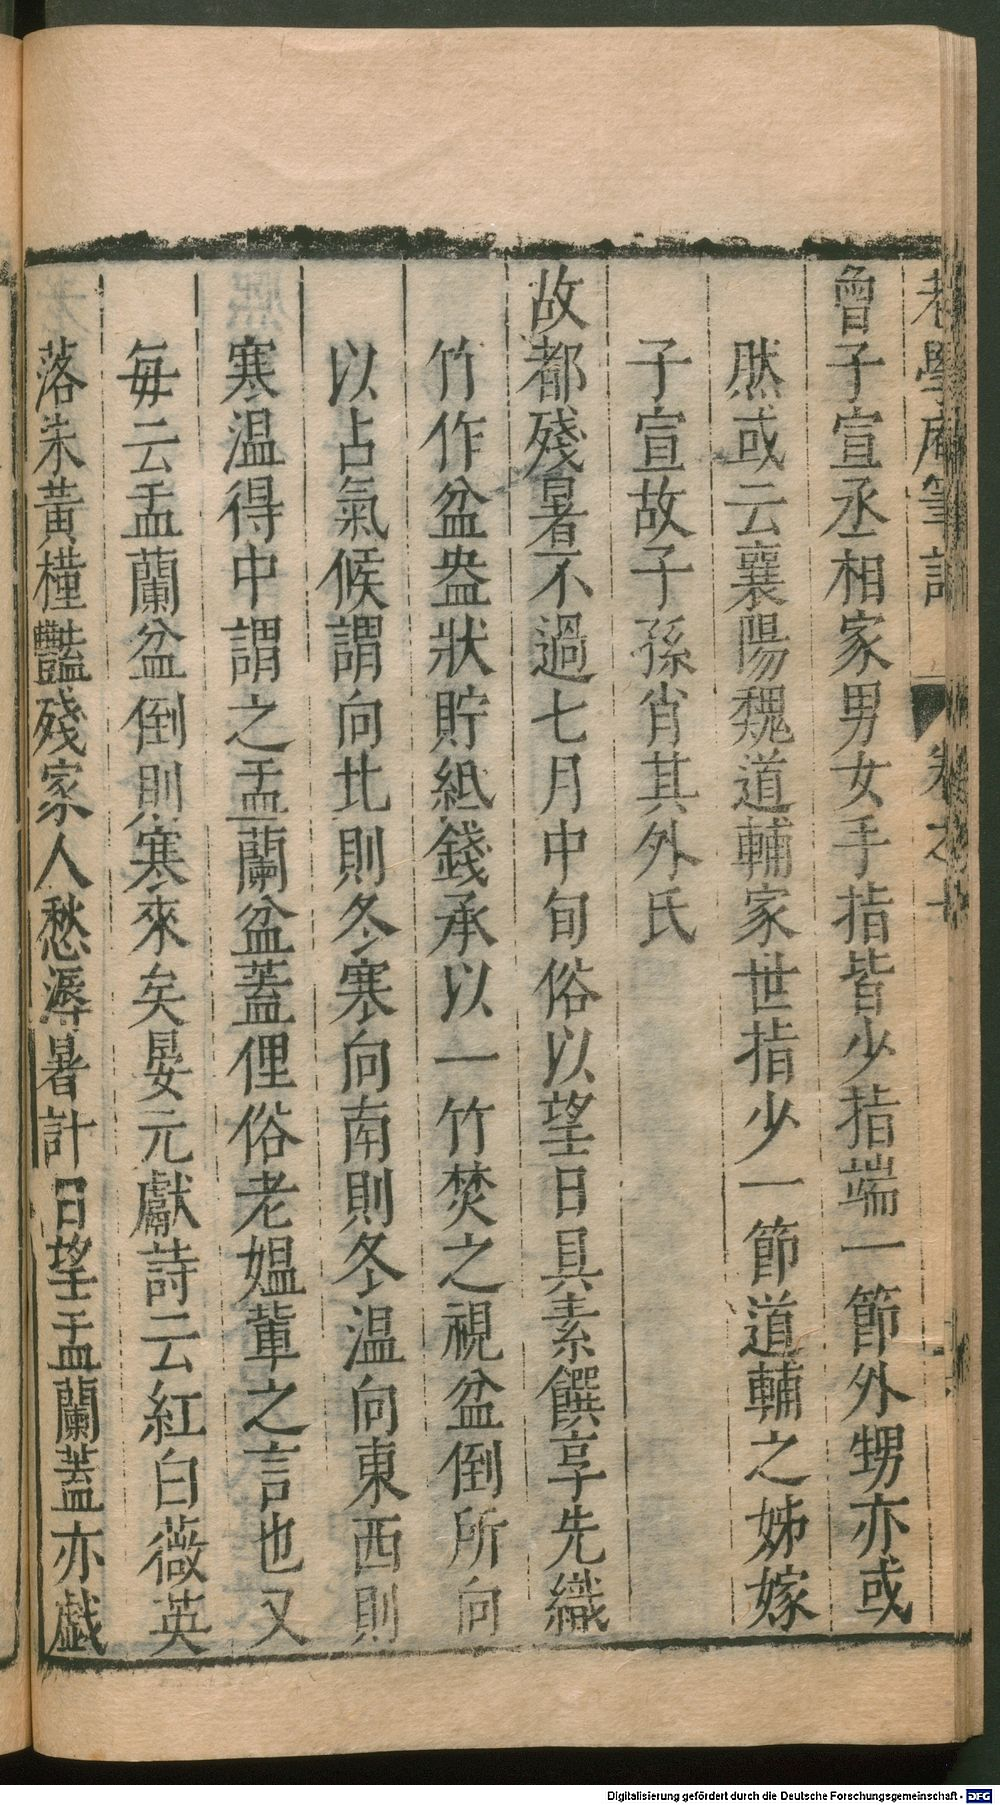 老學庵筆記 卷之十
曾子宣丞相家男女手指皆少指端一節外甥亦或
然或云襄陽魏道輔家世指少一節道輔之姊嫁
子宣故子孫肖其外氏
故都殘暑不過七月中旬俗以望日具素饌享先織
竹作盆盎狀貯紙錢承以一竹焚之視盆倒所向
以占氣候謂向北則冬寒向南則冬温向東西則
寒温得中謂之盂蘭盆蓋俚俗老媼輩之言也又
每云盂蘭盆倒則寒來矣晏元獻詩云紅白薇英
落朱黃槿豔殘家人愁溽暑計日望盂蘭蓋亦戲
Digitalisierung gefördert durch die Deutsche Forschungsgemeinschaft - DFG